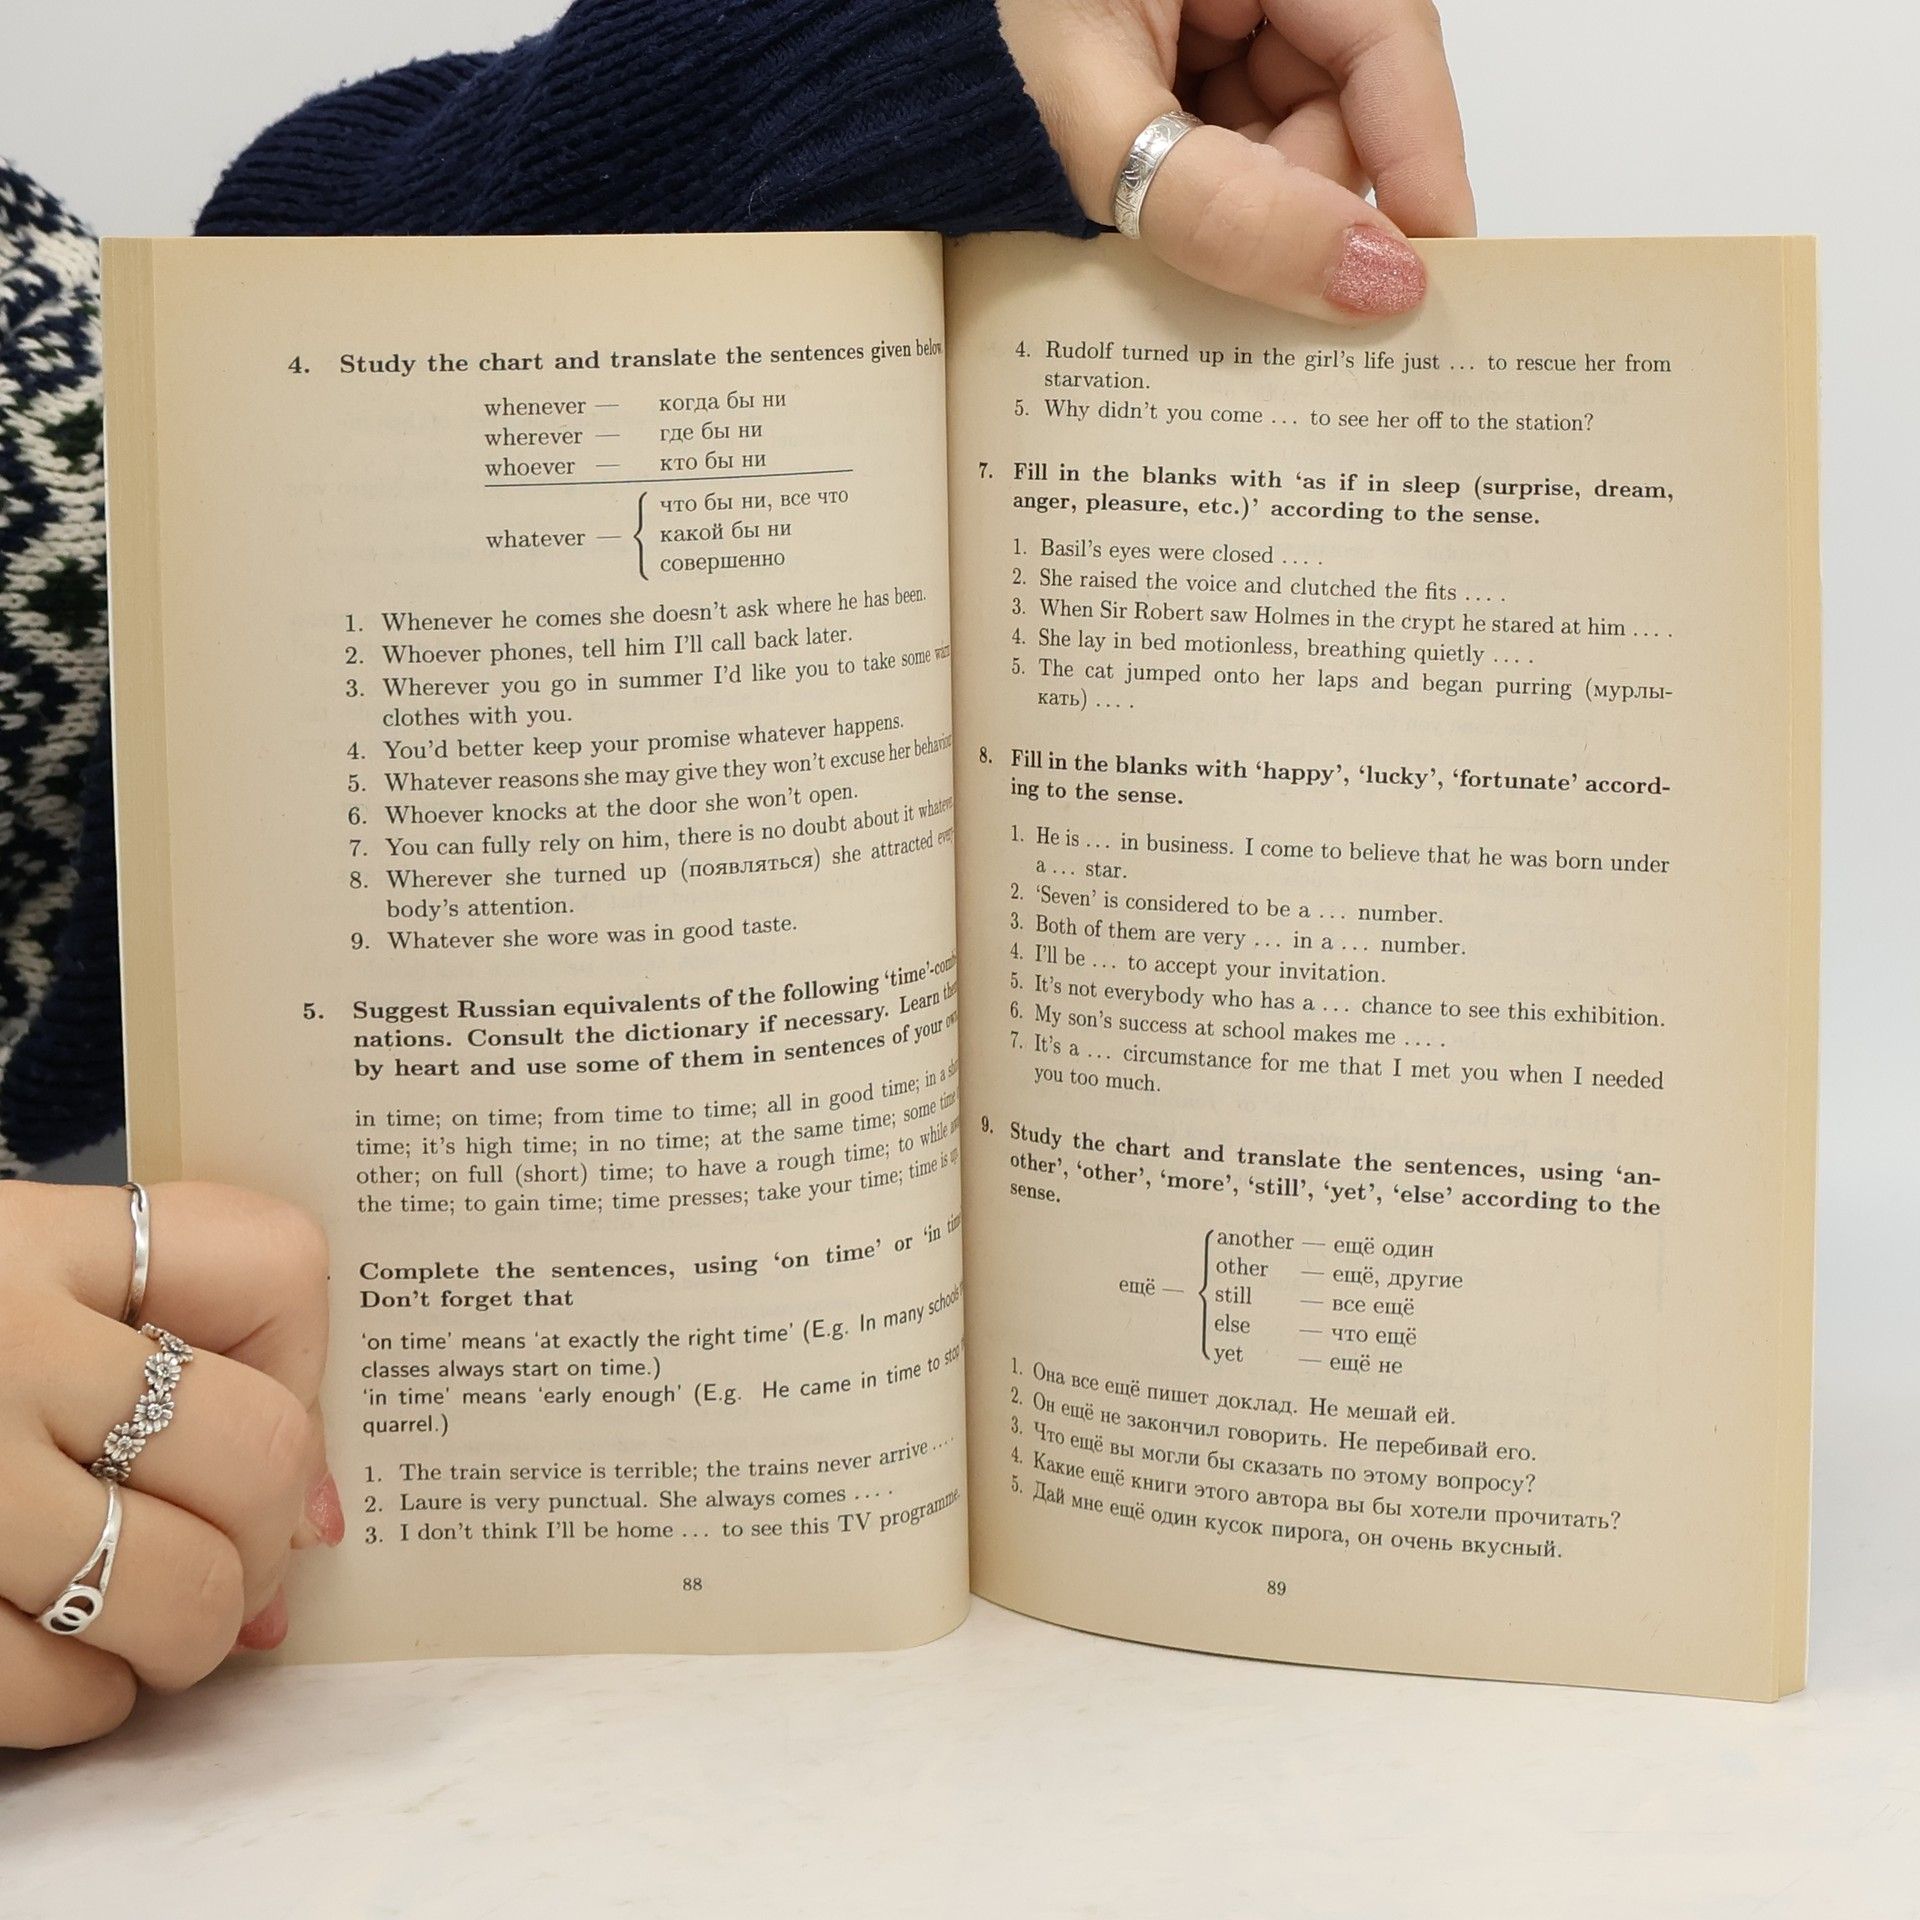 4. Study the chart and translate the sentences given below
whenever — когда бы ни
wherever — где бы ни
whoever — кто бы ни
что бы ни, все что
whatever — какой бы ни
совершенно
1. Whenever he comes she doesn't ask where he has been.
2. Whoever phones, tell him I'll call back later.
3. Wherever you go in summer I'd like you to take some
clothes with you.
4. You'd better keep your promise whatever happens.
5. Whatever reasons she may give they won't excuse her
6. Whoever knocks at the door she won't open.
7. You can fully rely on him, there is no doubt about it
8. Wherever she turned up (появляться) she attracted
body's attention.
9. Whatever she wore was in good taste.
5. Suggest Russian equivalents of the following
nations. Consult the dictionary if necessary. Learn
by heart and use some of them in sentences of your
in time; on time; from time to time; all in good time; in a
time; it's high time; in no time; at the same time; some time
other; on full (short) time; to have a rough time; to while
the time; to gain time; time presses; take your time; time is
Complete the sentences, using 'on time' or 'in
Don't forget that
'on time' means 'at exactly the right time' (E.g. In many schools
classes always start on time.)
'in time' means 'early enough' (E.g. He came in time to stop
quarrel.)
1. The train service is terrible; the trains never arrive ....
2. Laure is very punctual. She always comes ....
3. I don't think I'll be home ... to see this TV programme.
88
4. Rudolf turned up in the girl's life just ... to rescue her from
starvation.
5. Why didn't you come ... to see her off to the station?
7. Fill in the blanks with 'as if in sleep (surprise, dream,
anger, pleasure, etc.)' according to the sense.
1. Basil's eyes were closed ....
2. She raised the voice and clutched the fits ....
3. When Sir Robert saw Holmes in the crypt he stared at him ....
4. She lay in bed motionless, breathing quietly ....
5. The cat jumped onto her laps and began purring (мурлы-
кать) ....
8. Fill in the blanks with 'happy', 'lucky', 'fortunate' accord-
ing to the sense.
1. He is ... in business. I come to believe that he was born under
a ... star.
2. 'Seven' is considered to be a ... number.
3. Both of them are very ... in a ... number.
4. I'll be ... to accept your invitation.
5. It's not everybody who has a ... chance to see this exhibition.
6. My son's success at school makes me ....
7. It's a ... circumstance for me that I met you when I needed
you too much.
9. Study the chart and translate the sentences, using 'an-
other', 'other', 'more', 'still', 'yet', 'else' according to the
sense.
another — ещё один
other — ещё, другие
ещё — still — все ещё
else — что ещё
yet — ещё не
1. Она все ещё пишет доклад. Не мешай ей.
2. Он ещё не закончил говорить. Не перебивай его.
3. Что ещё вы могли бы сказать по этому вопросу?
4. Какие ещё книги этого автора вы бы хотели прочитать?
5. Дай мне ещё один кусок пирога, он очень вкусный.
89